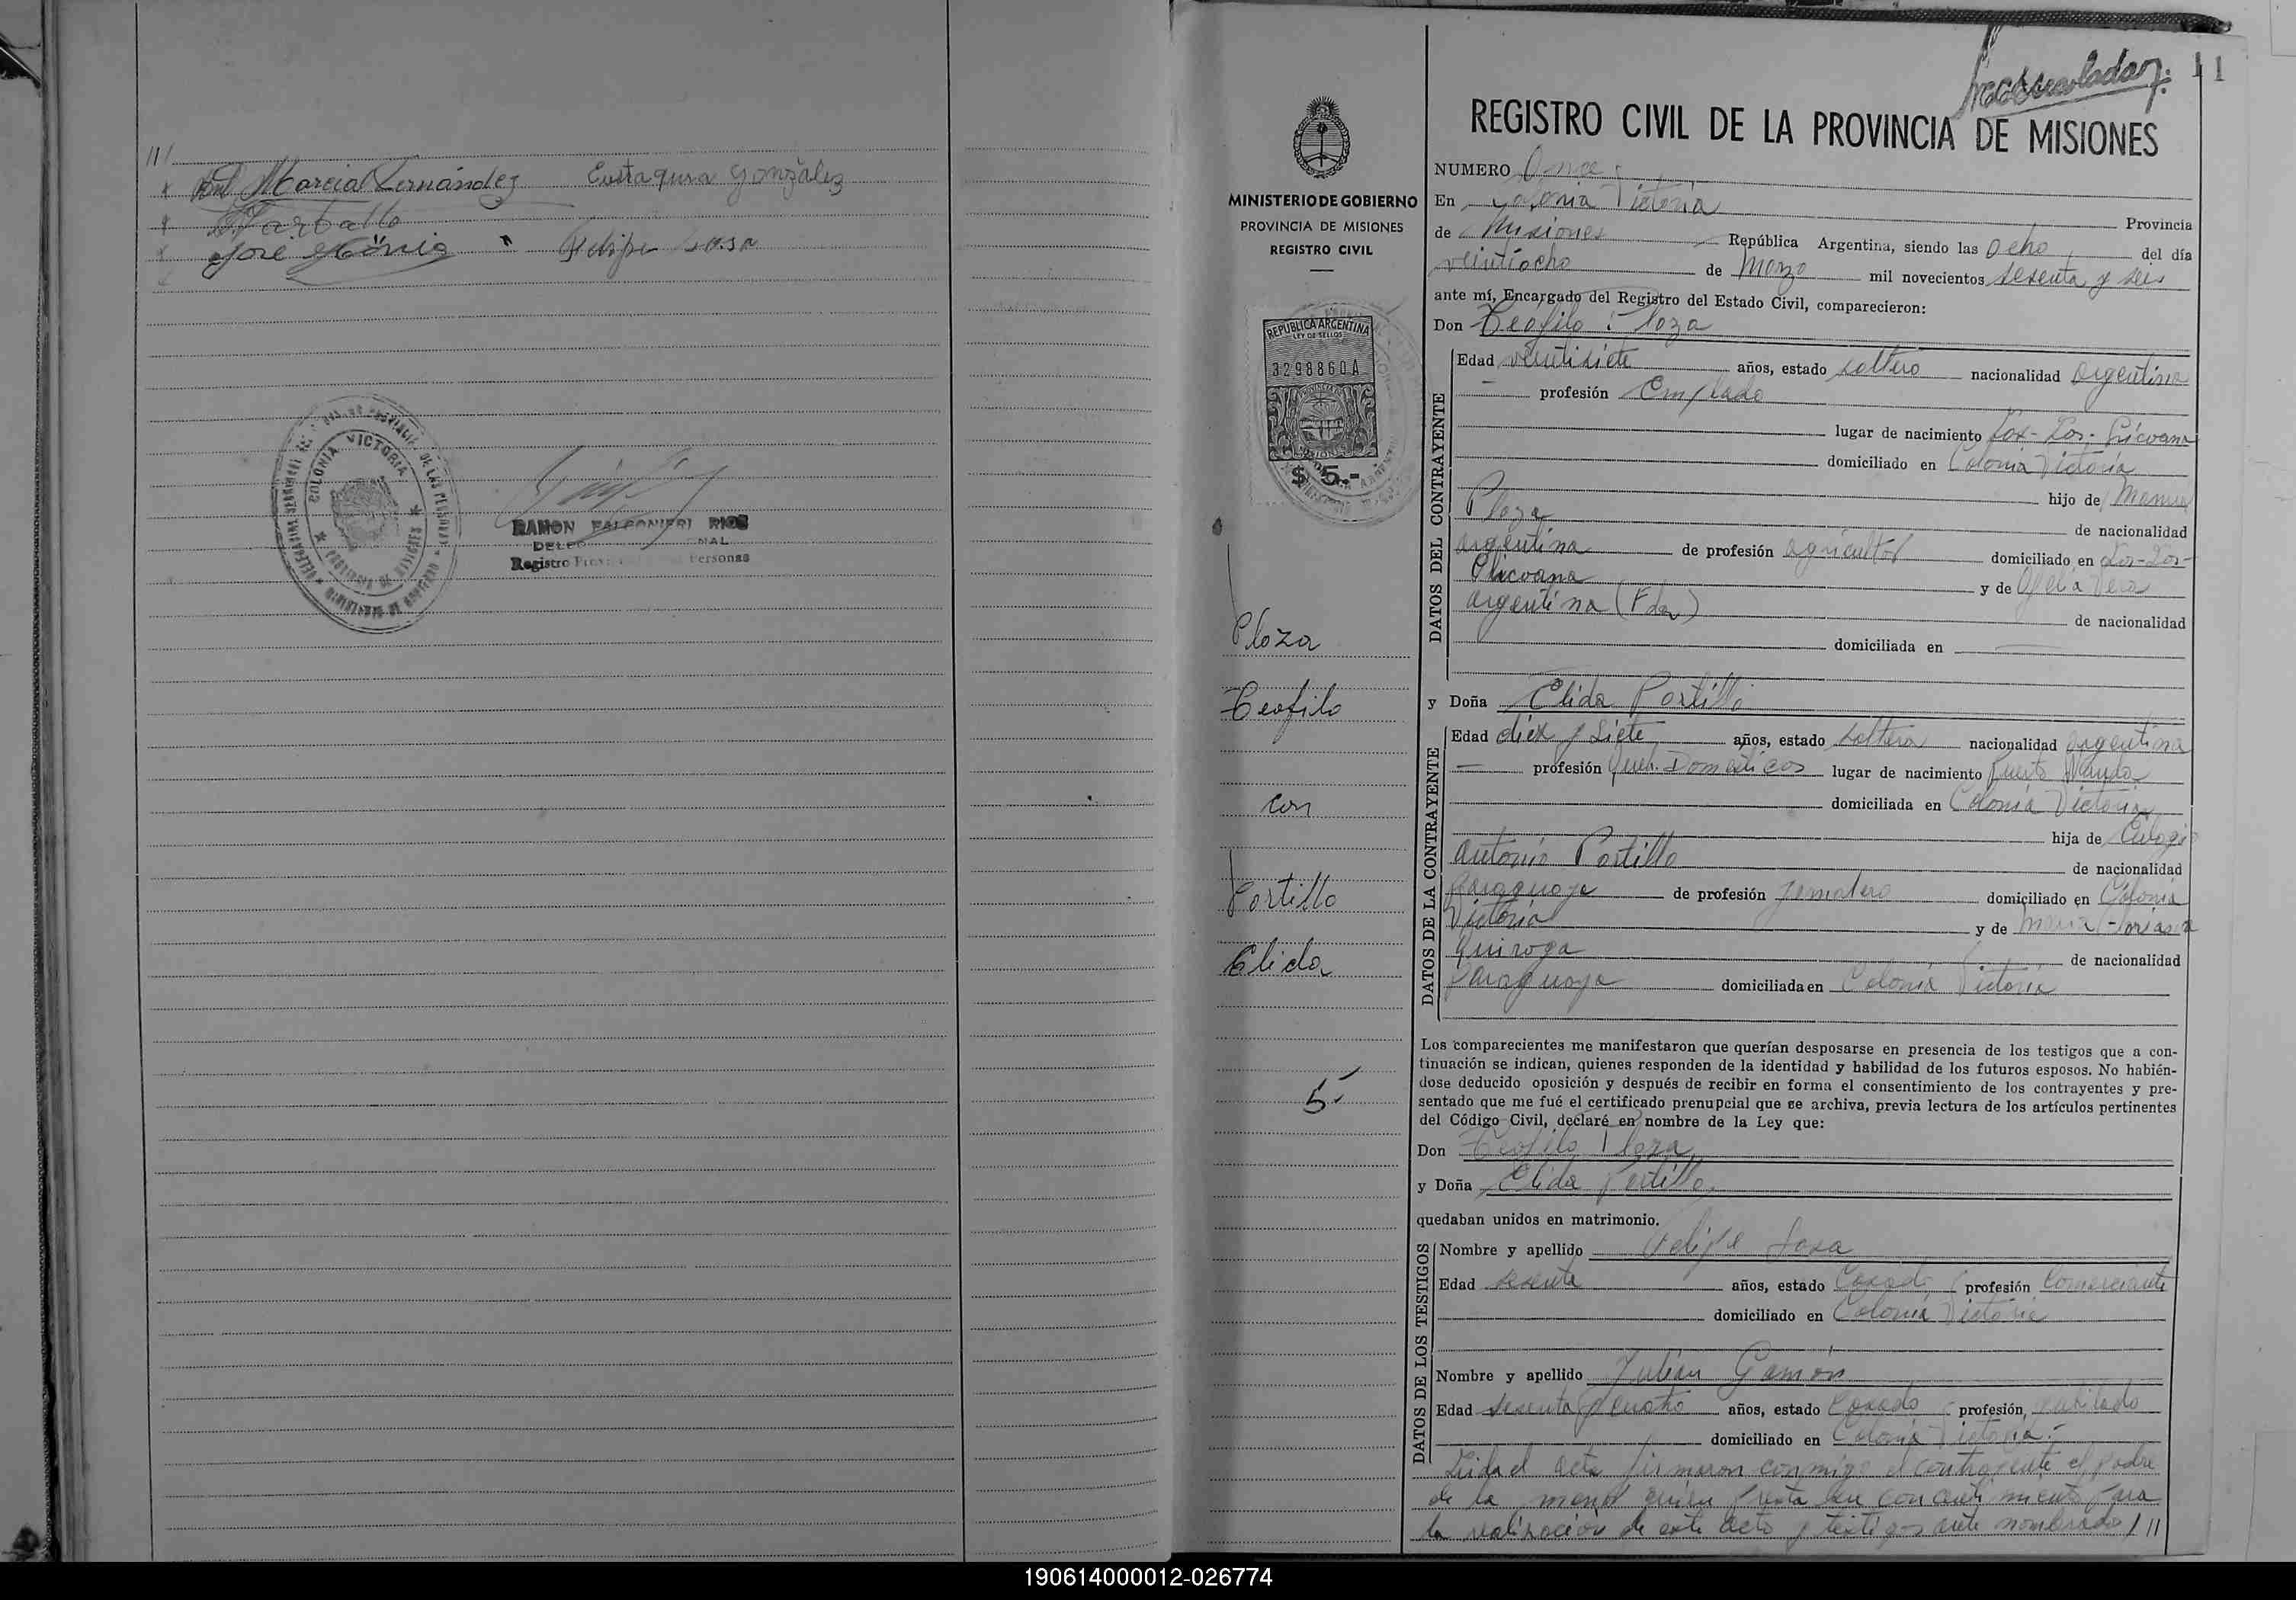 11/
Marcial Fernández Eustaquia González
D. Carballo
José König Felipe Sosa
COLONIA VICTORIA
PROVINCIA DE MISIONES
RAMON FALCONIERI RIOS
Registro Personas
11
REGISTRO CIVIL DE LA PROVINCIA DE MISIONES
MINISTERIO DE GOBIERNO
PROVINCIA DE MISIONES
REGISTRO CIVIL
REPUBLICA ARGENTINA
LEY DE SELLOS
3298860A
$ 5.-
Ploza
Teofilo
con
Portillo
Elida
5.-
NUMERO Once
En Colonia Victoria Provincia
de Misiones República Argentina, siendo las Ocho del día
veintiocho de Marzo mil novecientos sesenta y seis
ante mí, Encargado del Registro del Estado Civil, comparecieron:
Don Teofilo Ploza
DATOS DEL CONTRAYENTE
Edad veintisiete años, estado soltero nacionalidad argentina
— profesión Empleado
lugar de nacimiento
domiciliado en Colonia Victoria
hijo de Manuel
Ploza de nacionalidad
argentina de profesión agricultor domiciliado en
y de Ofelia Vera
argentina (Fda) de nacionalidad
domiciliada en —
y Doña Elida Portillo
DATOS DE LA CONTRAYENTE
Edad diez y siete años, estado soltera nacionalidad argentina
— profesión Queh. Domésticos lugar de nacimiento Puerto
domiciliada en Colonia Victoria
hija de Eulogio
Antonio Portillo de nacionalidad
Paraguaya de profesión jornalero domiciliado en Colonia
Victoria y de
Quiroga de nacionalidad
Paraguaya domiciliada en Colonia Victoria
Los comparecientes me manifestaron que querían desposarse en presencia de los testigos que a con-
tinuación se indican, quienes responden de la identidad y habilidad de los futuros esposos. No habién-
dose deducido oposición y después de recibir en forma el consentimiento de los contrayentes y pre-
sentado que me fué el certificado prenupcial que se archiva, previa lectura de los artículos pertinentes
del Código Civil, declaré en nombre de la Ley que:
Don Teofilo Ploza
y Doña Elida Portillo
quedaban unidos en matrimonio.
DATOS DE LOS TESTIGOS
Nombre y apellido Felipe Sosa
Edad sesenta años, estado Casado profesión Comerciante
domiciliado en Colonia Victoria
Nombre y apellido Julian Gamón
Edad sesenta y cuatro años, estado Casado profesión, jubilado
domiciliado en Colonia Victoria.-
Leida el acta firmaron conmigo el contrayente el padre
de la menor quien presta su consentimiento para
la realización de este acto y testigos ante nombrados ///
190614000012-026774